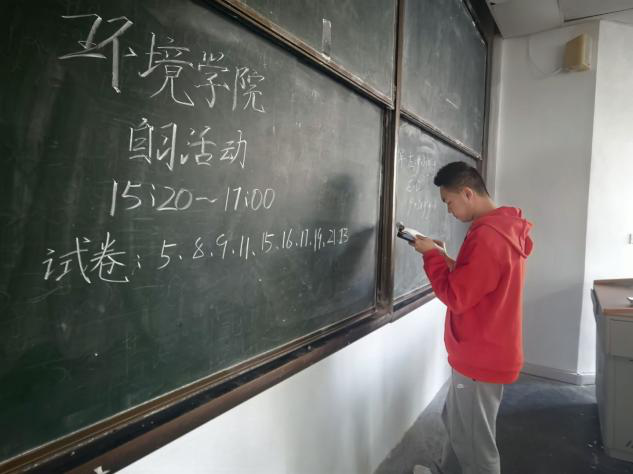 环境学院
自习活动
15:20~17:00
试卷:5、8、9、11、15、16、17、19、21、23